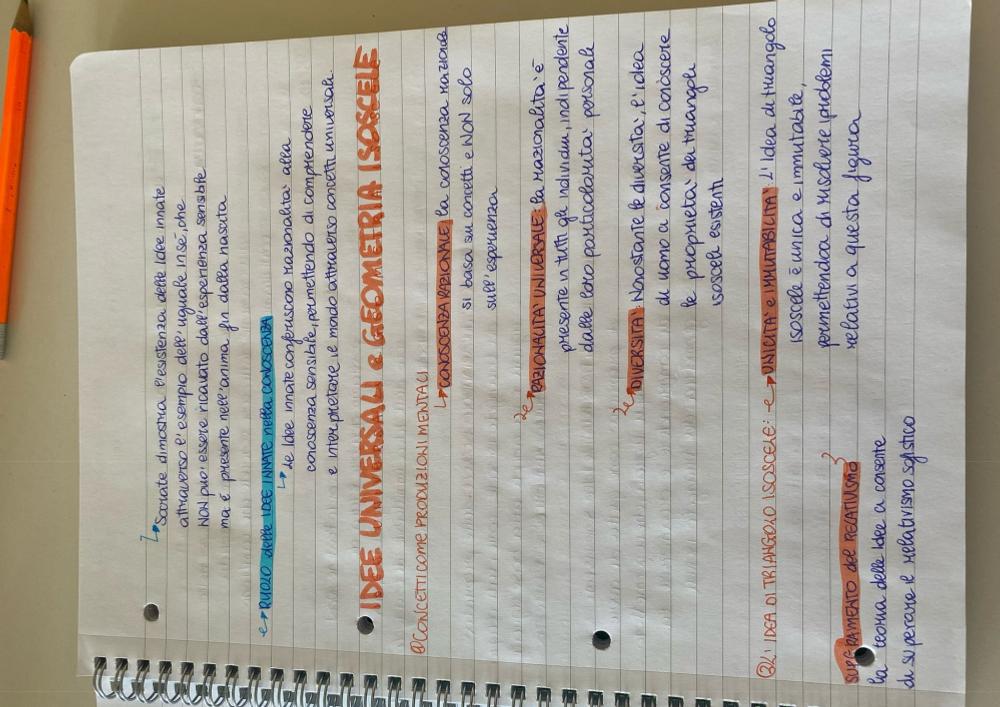 ↳ Socrate dimostra l'esistenza delle Idee innate
attraverso l'esempio dell'uguale in sé, che
NON può essere ricavato dall'esperienza sensibile
ma è presente nell'anima fin dalla nascita
→ RUOLO delle IDEE INNATE nella CONOSCENZA
↳ Le Idee innate conferiscono razionalità alla
conoscenza sensibile, permettendo di comprendere
e interpretare il mondo attraverso concetti universali.
IDEE UNIVERSALI e GEOMETRIA ISOSCELE
@CONCETTI COME PRODUZIONI MENTALI
↳ CONOSCENZA RAZIONALE: la conoscenza razionale
si basa su concetti e NON solo
sull'esperienza
→ RAZIONALITA' UNIVERSALE: la razionalità è
presente in tutti gli individui, indipendente
dalle loro particolarità personali
→ DIVERSITA': Nonostante le diversità, l'idea
di uomo ci consente di conoscere
le proprietà dei triangoli
isosceli esistenti
@2: IDEA DI TRIANGOLO ISOSCELE: → UNICITA' e IMMUTABILITA': L'Idea di triangolo
isoscele è unica e immutabile,
permettendoci di risolvere i problemi
relativi a questa figura
SUPERAMENTO del RELATIVISMO
la teoria delle Idee ci consente
di superare il relativismo sofistico